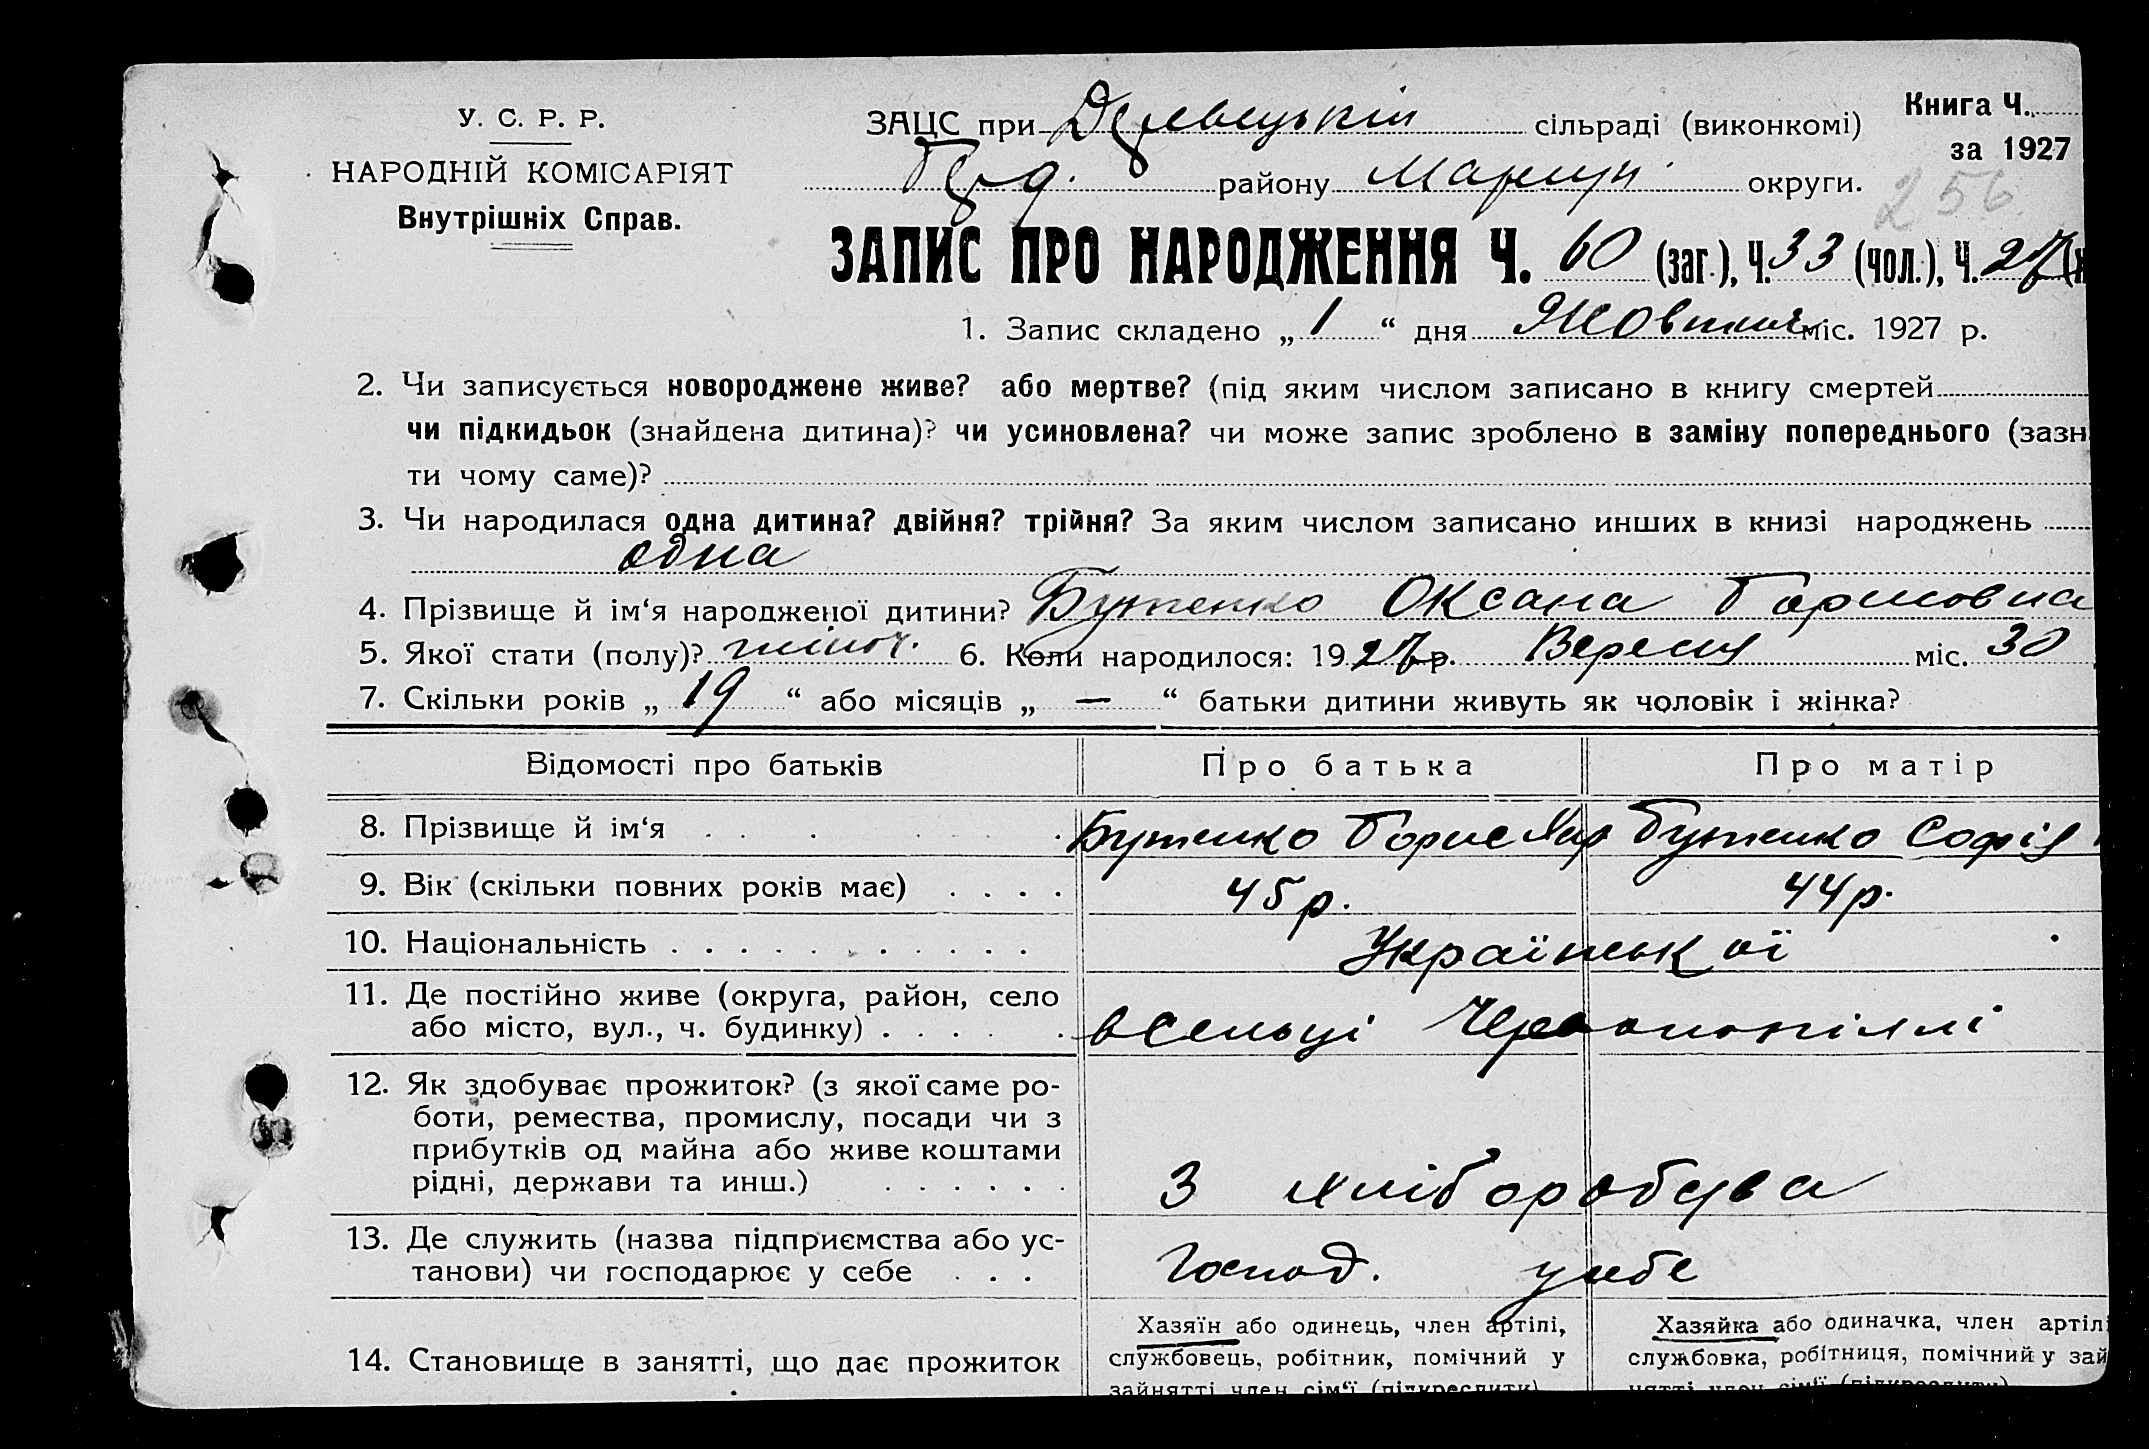 У. С. Р. Р.
НАРОДНІЙ КОМІСАРІЯТ
Внутрішніх Справ.
ЗАЦС при сільраді (виконкомі)
Книга Ч.
за 1927
району Маріуп округи.
256
ЗАПИС ПРО НАРОДЖЕННЯ Ч. 60 (заг.), Ч. 33 (чол.), Ч. 27
1. Запис складено „ 1 “ дня Жовтня міс. 1927 р.
2. Чи записується новороджене живе? або мертве? (під яким числом записано в книгу смертей
чи підкидьок (знайдена дитина)? чи усиновлена? чи може запис зроблено в заміну попереднього (зазн
ти чому саме)?
3. Чи народилася одна дитина? двійня? трійня? За яким числом записано инших в книзі народжень
одна
4. Прізвище й ім‘я народженої дитини? Бутенко Оксана Борисовна
5. Якої стати (полу)? жіноч. 6. Коли народилося: 1927 р. Вересня міс. 30
7. Скільки років „ 19 “ або місяців „ — “ батьки дитини живуть як чоловік і жінка?
Відомості про батьків Про батька Про матір
8. Прізвище й ім‘я Бутенко Борис Бутенко Софія
9. Вік (скільки повних років має) 45 р. 44 р.
10. Національність Української
11. Де постійно живе (округа, район, село
або місто, вул., ч. будинку) в сельці Червонопіллі
12. Як здобуває прожиток? (з якої саме ро-
боти, ремества, промислу, посади чи з
прибутків од майна або живе коштами
рідні, держави та инш.) З хліборобства
13. Де служить (назва підприємства або ус-
танови) чи господарює у себе Господ. у себе
14. Становище в занятті, що дає прожиток
Хазяїн або одинець, член артілі,
службовець, робітник, помічний у
зайнятті член сім‘ї (підкреслити)
Хазяйка або одиначка, член артіл
службовка, робітниця, помічний у зай
нятті член сім‘ї (підкреслити)